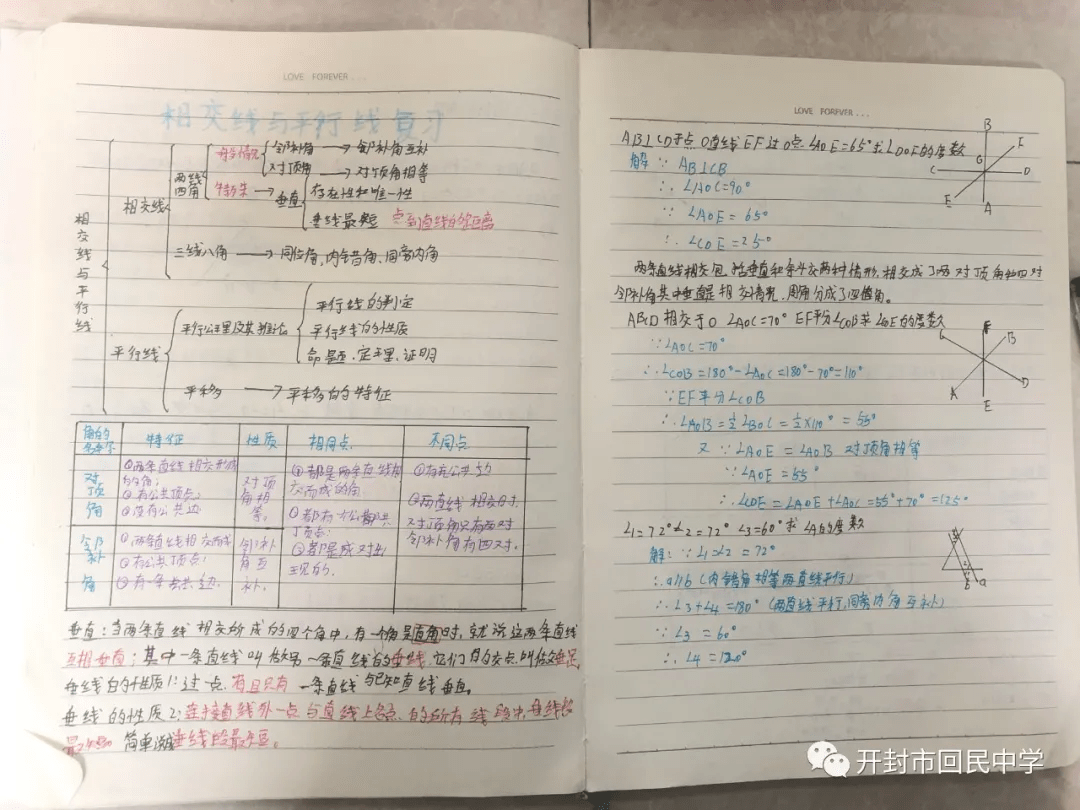 LOVE FOREVER...
相交线与平行线复习
相交线与平行线
相交线
两线四角
一般情况
邻补角 → 邻补角互补
对顶角 → 对顶角相等
特殊 → 垂直
存在性和唯一性
垂线最短 点到直线的距离
三线八角 → 同位角、内错角、同旁内角
平行线
平行公理及其推论
平行线的判定
平行线的性质
命题、定理、证明
平移 → 平移的特征
角的名称 特征 性质 相同点 不同点
对顶角
①两条直线相交形成的角;
②有公共顶点;
③没有公共边
对顶角相等;
①都是两条直线相交而成的角
②都有一个公共顶点;
③都是成对出现的.
①有无公共边
②两直线相交时,对顶角只有两对邻补角有四对.
邻补角
①两条直线相交而成
②有公共顶点;
③有一条公共边.
邻补角互补.
垂直:当两条直线相交所成的四个角中,有一个角是直角时,就说这两条直线
互相垂直;其中一条直线叫做另一条直线的垂线,它们的交点叫做垂足.
垂线的性质1:过一点.有且只有一条直线与已知直线垂直.
垂线的性质2:连接直线外一点与直线上各点的所有线段中,垂线段
最短 简单说成垂线段最短.
LOVE FOREVER...
AB⊥CD于点O直线EF过O点∠AOE=65°求∠DOF的度数
解 ∵AB⊥CB
∴∠AOC=90°
∵∠AOE=65°
∴∠COE=25°
B
F
C
D
E
A
两条直线相交包括垂直和斜交两种情形.相交成了两对顶角和四对
邻补角其中垂直是相交情况,周角分成了四直角.
ABCD相交于O ∠AOC=70° EF平分∠COB求∠COE的度数
∵∠AOC=70°
∴∠COB=180°-∠AOC=180°-70°=110°
∵EF平分∠COB
∴∠AOB=½∠BOC=½×110°=55°
又∵∠AOE=∠AOB 对顶角相等
∵∠AOE=55°
∴∠COE=∠AOE+∠AOC=55°+70°=125°
F
B
A
D
E
∠1=72° ∠2=72° ∠3=60°求∠4的度数
解:∵∠1=∠2=72°
∴a∥b(内错角相等两直线平行)
∴∠3+∠4=180°(两直线平行,同旁内角互补)
∵∠3=60°
∴∠4=120°
b
a
开封市回民中学